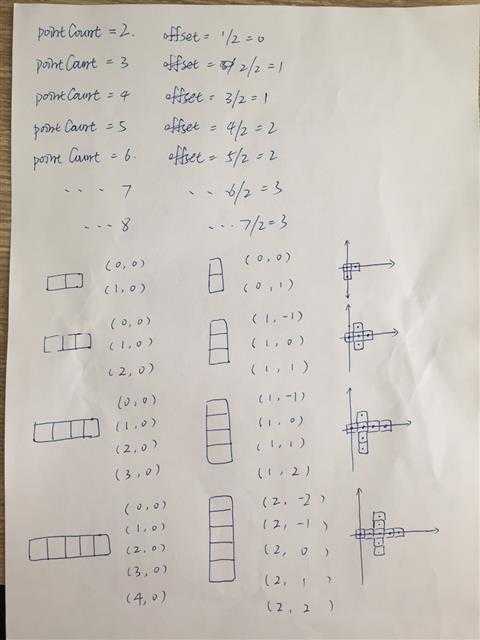 pointCount = 2. offset = 1/2 = 0
pointCount = 3 offset = 2/2 = 1
pointCount = 4 offset = 3/2 = 1
pointCount = 5 offset = 4/2 = 2
pointCount = 6. offset = 5/2 = 2
.... 7 ... 6/2 = 3
... 8 ... 7/2 = 3
(0,0) (0,0)
(1,0) (0,1)
(0,0) (1,-1)
(1,0) (1,0)
(2,0) (1,1)
(0,0) (1,-1)
(1,0) (1,0)
(2,0) (1,1)
(3,0) (1,2)
(0,0) (2,-2)
(1,0) (2,-1)
(2,0) (2,0)
(3,0) (2,1)
(4,0) (2,2)